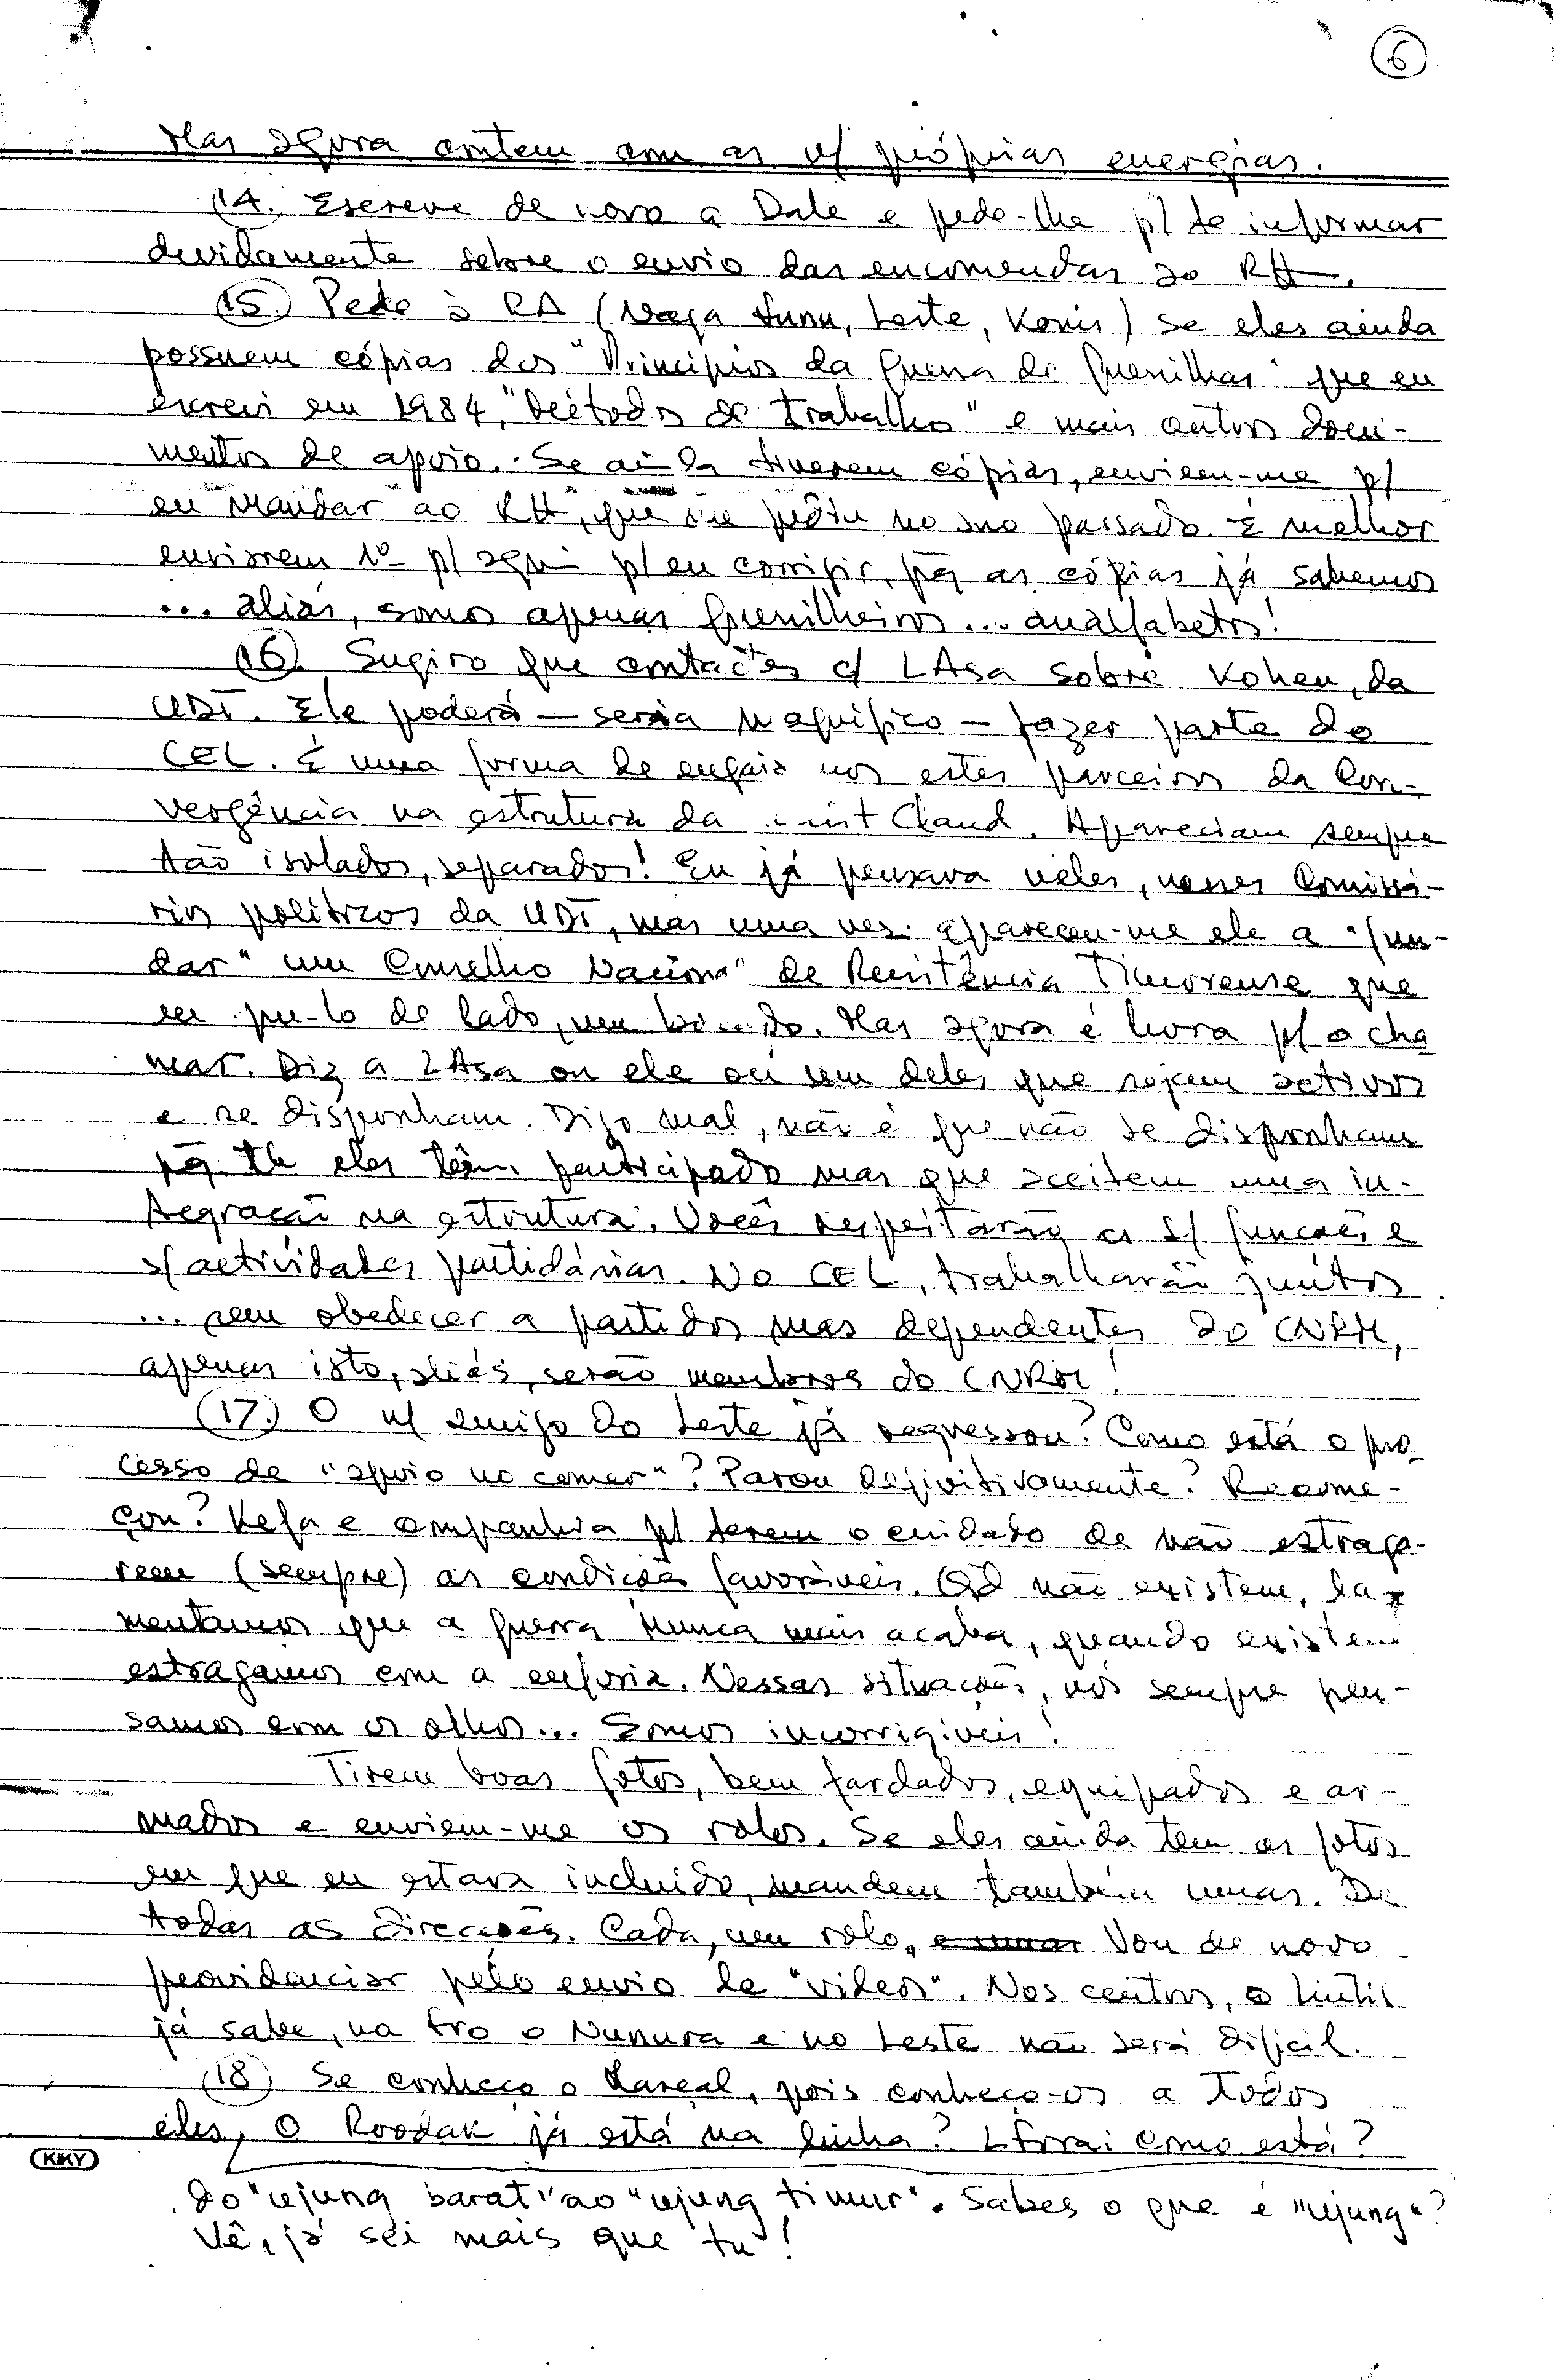 6
Mas agora contem com as v/ próprias energias.
(14.) Escreve de novo a Dale e pede-lhe p/ te informar
devidamente sobre o envio das encomendas ao RH.
(15.) Pede à RA (Naga Lunu, Leste, Konis) se eles ainda
possuem cópias dos "Princípios da Guerra de Guerrilhas" que eu
escrevi em 1984, "Métodos de trabalho" e mais outros docu-
mentos de apoio. Se ainda tiverem cópias, enviem-me p/
eu mandar ao RH, que me pediu no ano passado. É melhor
enviarem 1º p/ aqui p/ eu corrigir, pq as cópias já sabemos
... aliás, somos apenas guerrilheiros... analfabetos!
(16). Sugiro que contactes c/ LAsa sobre Kohen, da
UDT. Ele poderá — seria magnífico — fazer parte do
CEL. É uma forma de engajarmos estes parceiros da Con-
vergência na estrutura da Cland. Apareciam sempre
tão isolados, separados! Eu já pensava neles, nesses Comissá-
rios políticos da UDT, mas uma vez apareceu-me ele a "fun-
dar" um Conselho Nacional de Resistência Timorense que
eu pu-lo de lado, um bocado. Mas agora é hora p/ o cha
mar. Diz a LAsa ou ele ou um deles que sejam activos
e se disponham. Digo mal, não é que não se disponham
pq tb eles têm participado mas que aceitem uma in-
tegração na estrutura. Vocês respeitarão as s/ funções e
s/ actividades partidárias. No CEL, trabalharão juntos
... sem obedecer a partidos mas dependentes do CNRM,
apenas isto, aliás, serão membros do CNRM!
(17.) O n/ amigo do Leste já regressou? Como está o pro
cesso de "apoio no comer"? Parou definitivamente? Recome-
çou? Kefa e companhia p/ terem o cuidado de não estraga-
rem (sempre) as condições favoráveis. Qd não existem, la-
mentamos que a guerra nunca mais acaba, quando existem
estragamos com a euforia. Nessas situações, nós sempre pen-
samos com os olhos... Somos incorrigíveis!
Tirem boas fotos, bem fardados, equipados e ar-
mados e enviem-me os rolos. Se eles ainda tem as fotos
em que eu estava incluído, mandem também umas. De
todas as direcções. Cada, um rolo. Vou de novo
providenciar pelo envio de "videos". Nos centros, o Lintil
já sabe, na fro o Nunura e no Leste não será difícil.
(18) Se conheço o Lareal, pois conheço-os a todos
eles, O Roodak já está na linha? L Forai como está?
do "ujung barat" ao "ujung timur". Sabes o que é "ujung"?
Vê, já sei mais que tu!
KKY